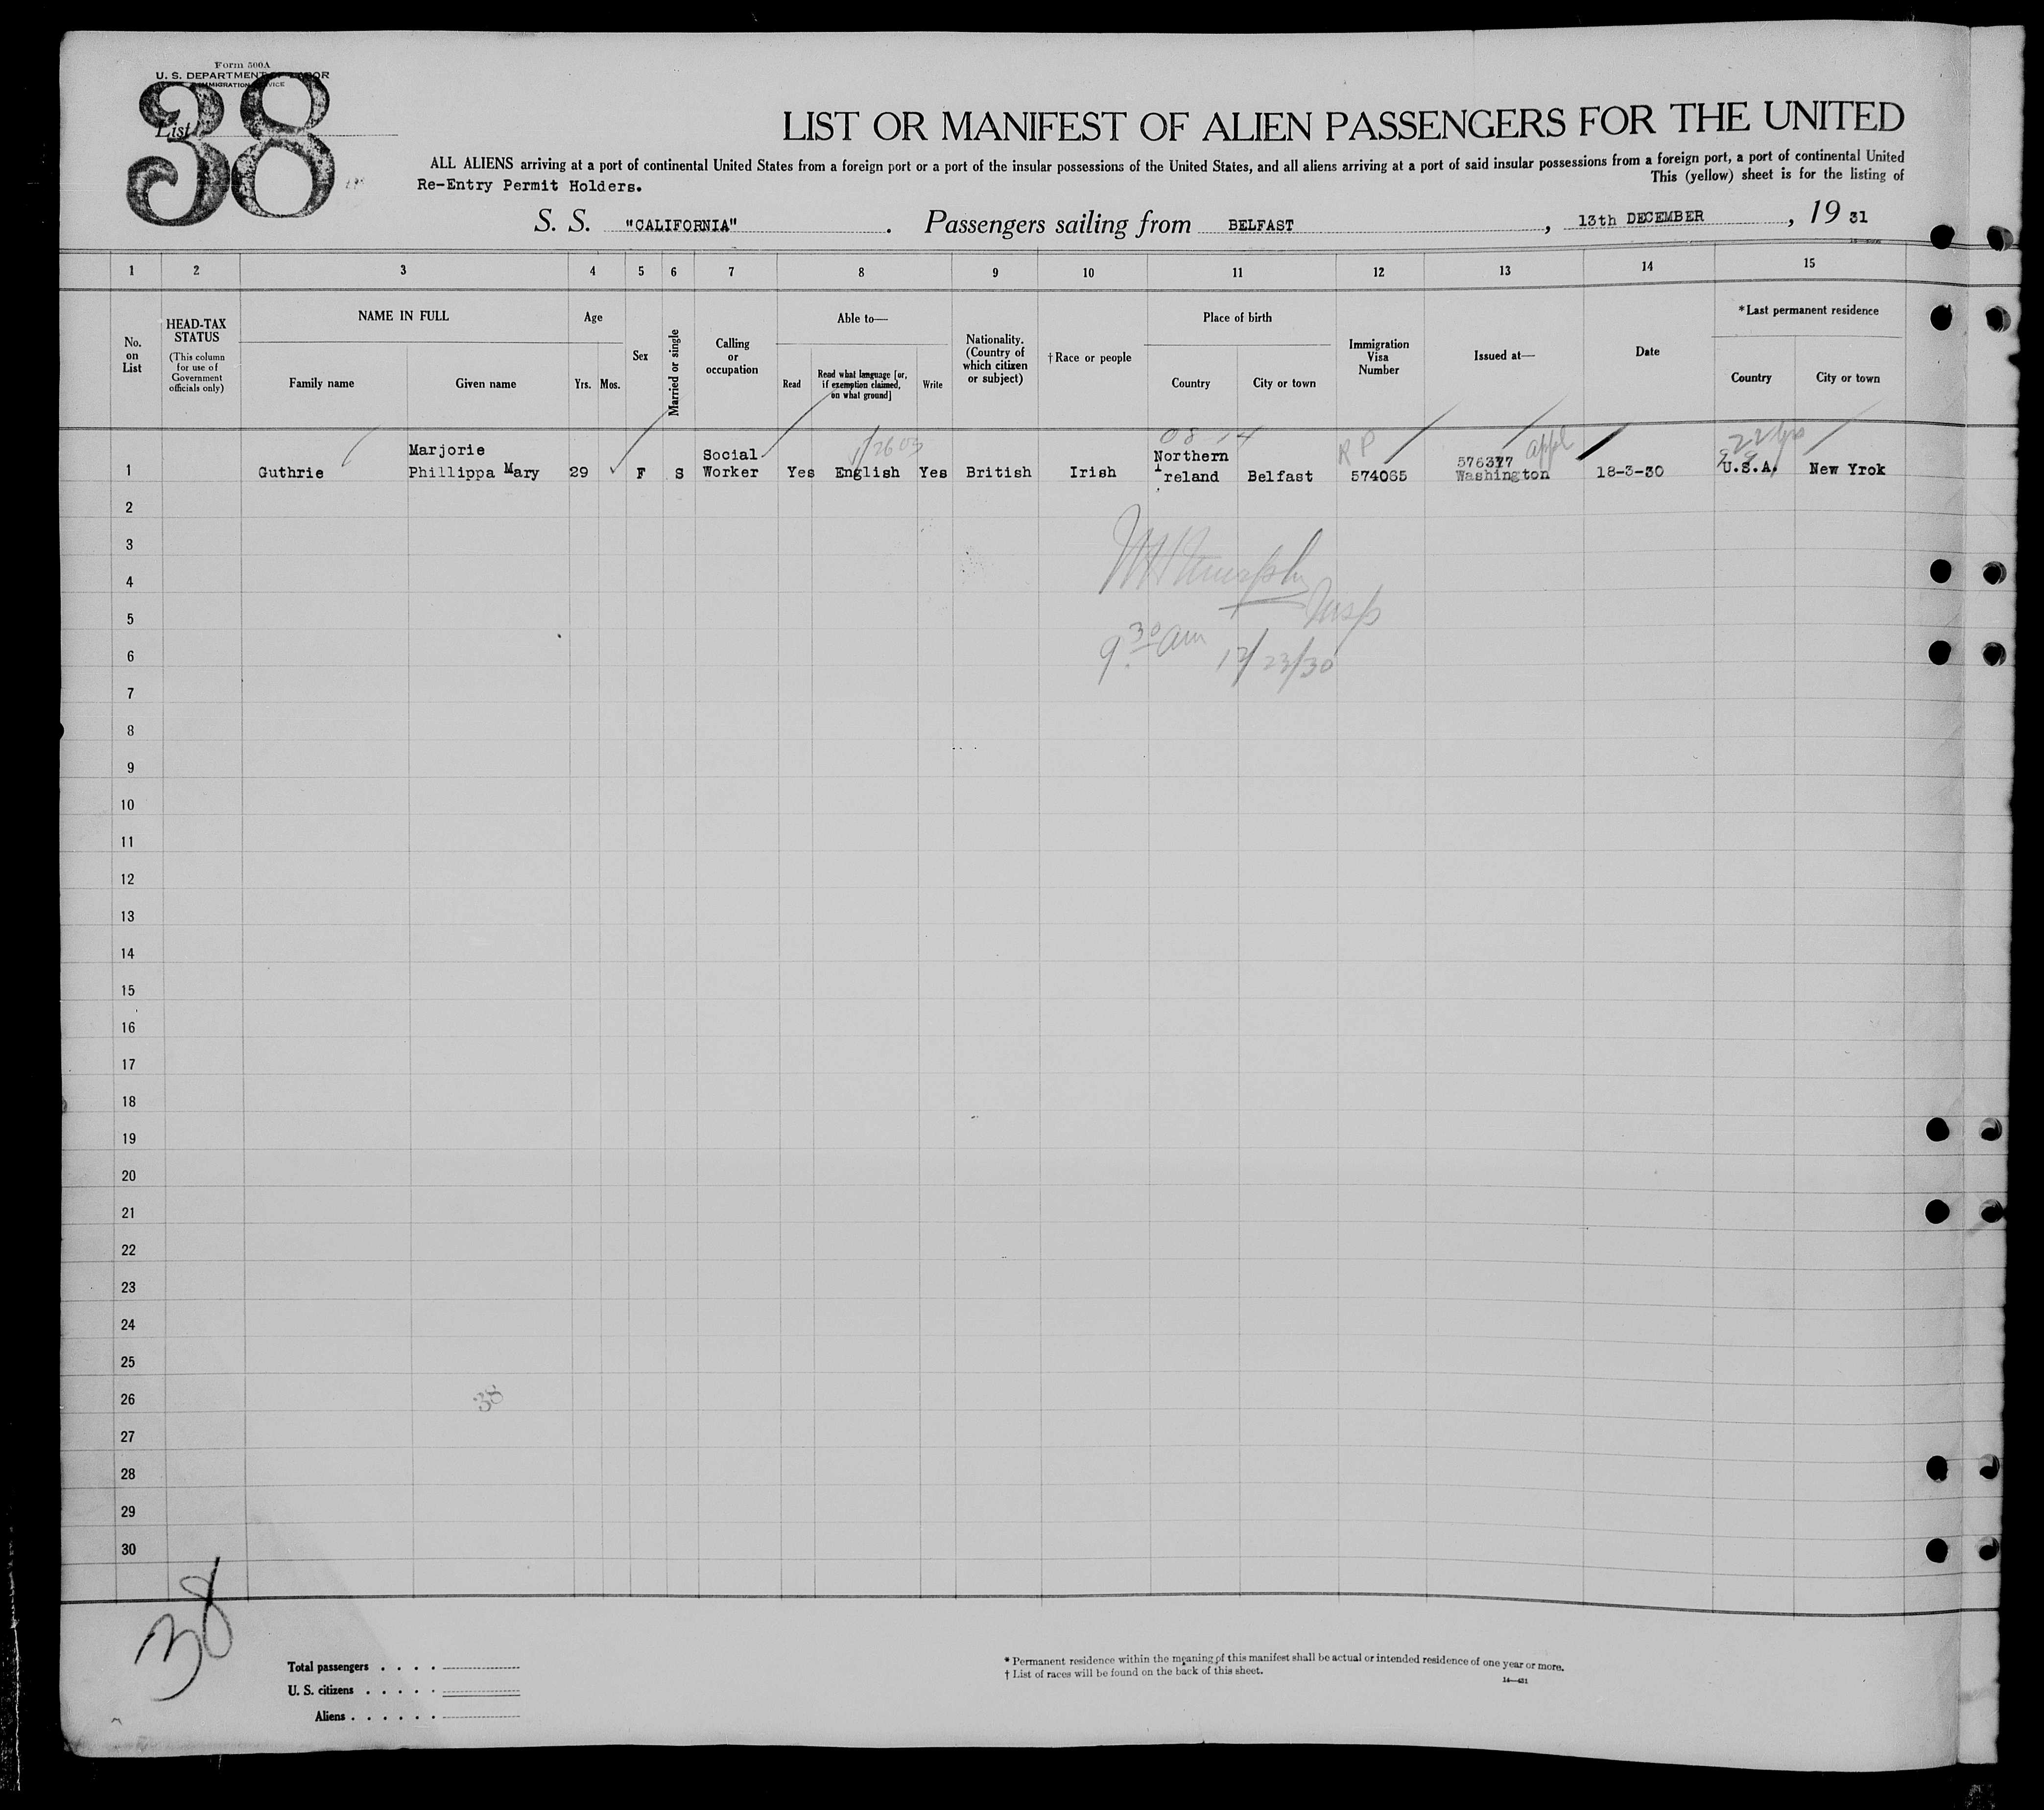 Form 500A
U. S. DEPARTMENT OF LABOR
IMMIGRATION SERVICE
38
List
LIST OR MANIFEST OF ALIEN PASSENGERS FOR THE UNITED
ALL ALIENS arriving at a port of continental United States from a foreign port or a port of the insular possessions of the United States, and all aliens arriving at a port of said insular possessions from a foreign port, a port of continental United
Re-Entry Permit Holders.
This (yellow) sheet is for the listing of
S. S. "CALIFORNIA" . Passengers sailing from BELFAST , 13th DECEMBER , 19 31
1 2 3 4 5 6 7 8 9 10 11 12 13 14 15
No. on List
HEAD-TAX STATUS
(This column for use of Government officials only)
NAME IN FULL
Family name
Given name
Age
Yrs.
Mos.
Sex
Married or single
Calling or occupation
Able to—
Read
Read what language [or, if exemption claimed, on what ground]
Write
Nationality. (Country of which citizen or subject)
†Race or people
Place of birth
Country
City or town
Immigration Visa Number
Issued at—
Date
*Last permanent residence
Country
City or town
08 14
R P
appl
22 yrs
1 Guthrie Marjorie Phillippa Mary 29 F S Social Worker Yes English Yes British Irish Northern Ireland Belfast 574065 576377 Washington 18-3-30 U.S.A. New Yrok
2
3
4
Murphy
5
Insp
6
9.30 am 12/23/30
7
8
9
10
11
12
13
14
15
16
17
18
19
20
21
22
23
24
25
26
38
27
28
29
30
38
Total passengers . . . .
U. S. citizens . . . . .
Aliens . . . . . .
* Permanent residence within the meaning of this manifest shall be actual or intended residence of one year or more.
† List of races will be found on the back of this sheet.